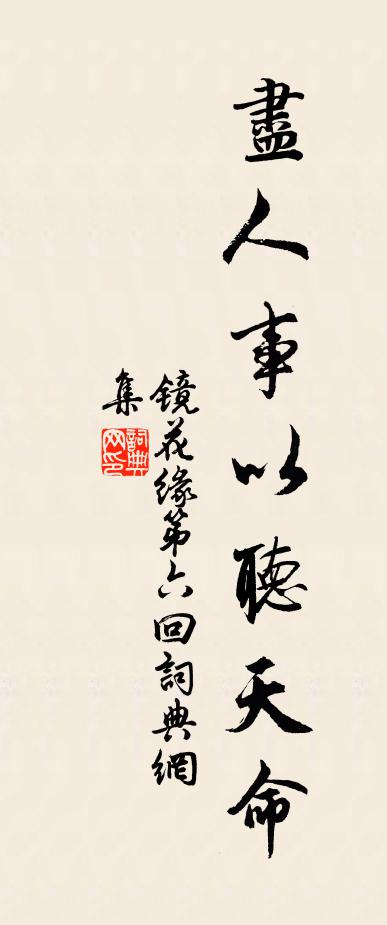 盡人事以聽天命
鏡花緣第六回詞典網
集
詞典
网印